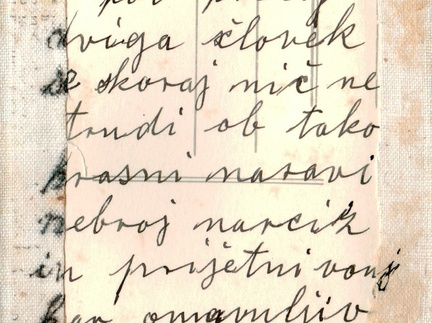 dviga človek
se skoraj nič ne
trudi ob tako
krasni naravi
nebroj narciz
in prijetni vonj
omamljiv